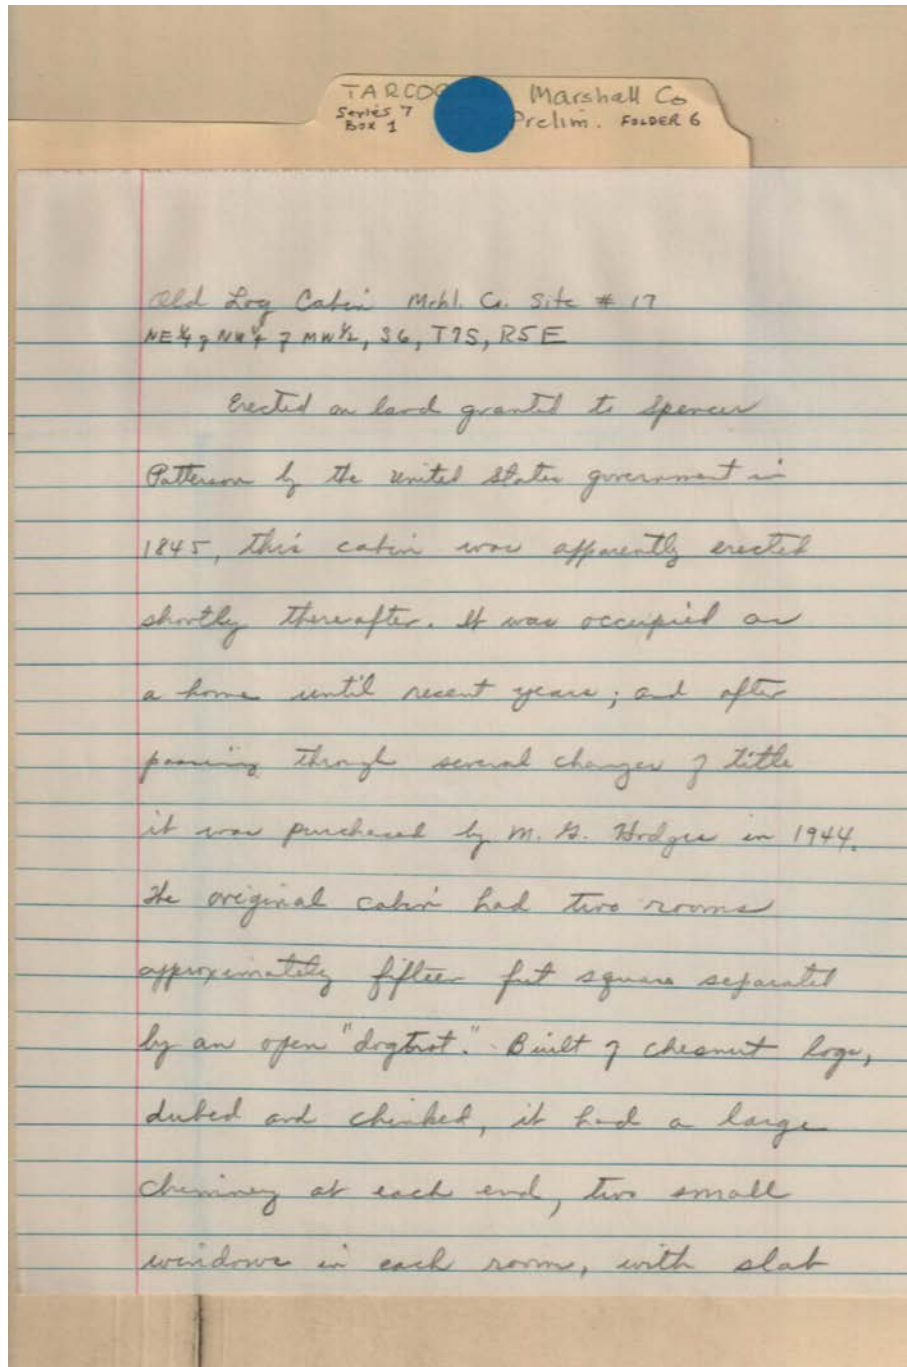 TARCOG Marshall Co
Series 7 Prelim. FOLDER 6
Box 1
Old Log Cabin Mrhl. Co. Site # 17
NE 1/4 of NW 1/4 of MW 1/2, S6, T7S, R5E
Erected on land granted to Spencer
Patterson by the united States government in
1845, this cabin was apparently erected
shortly thereafter. It was occupied as
a home until recent years; and after
passing through several changes of title
it was purchased by M. G. Hodges in 1944.
The original cabin had two rooms
approximately fifteen feet square separated
by an open "dogtrot." Built of chesnut logs,
dubed and chinked, it had a large
chminey at each end, two small
windows in each room, with slab